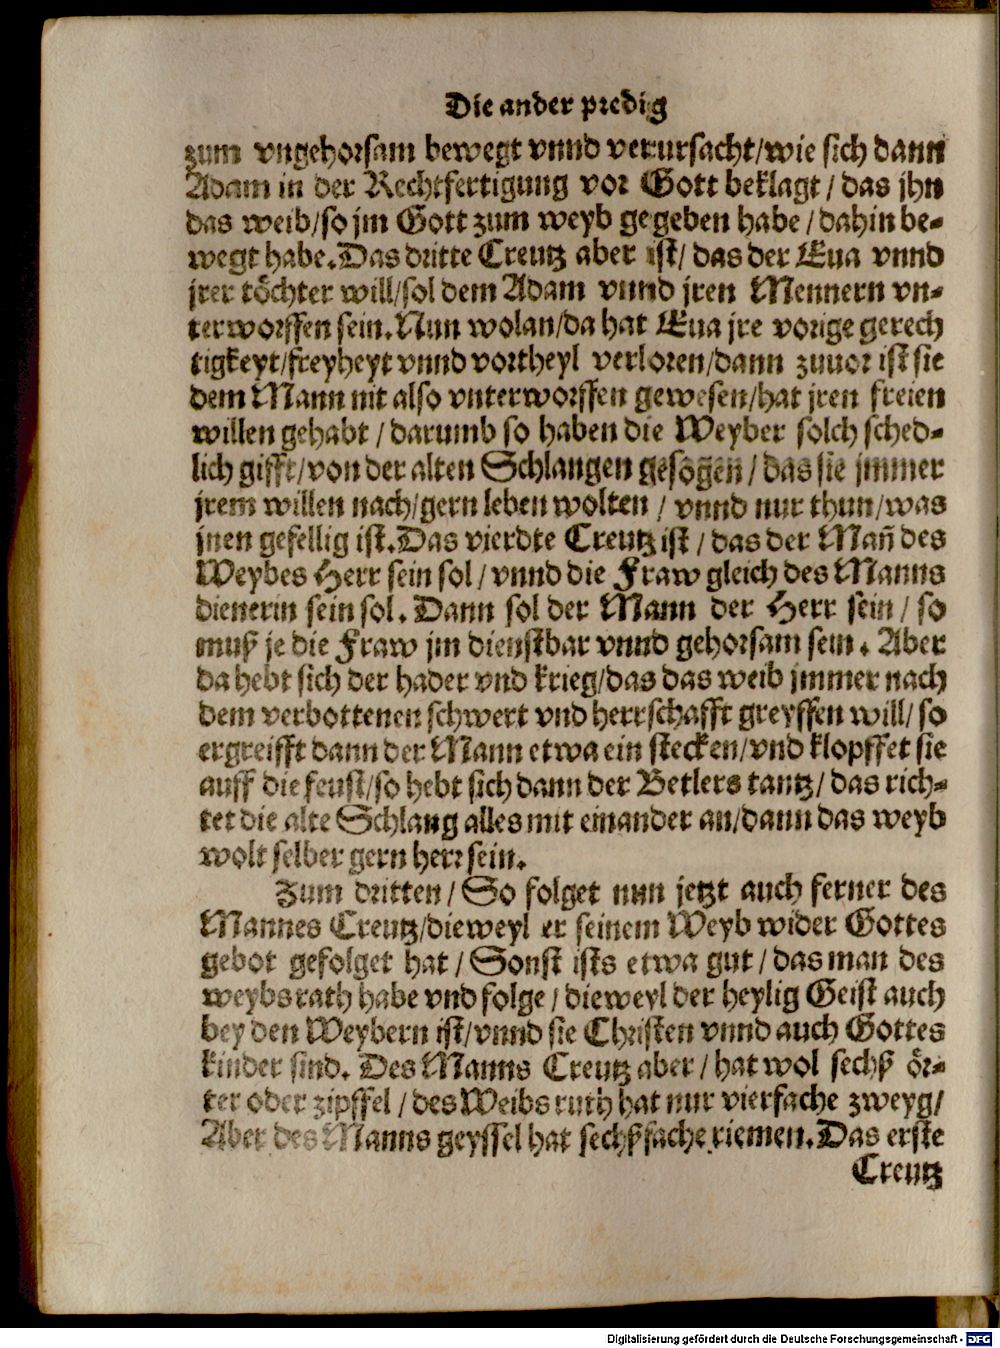 Die ander predig
zum vngehorsam bewegt vnnd verursacht/wie sich dann
Adam in der Rechtfertigung vor Gott beklagt / das jhn
das weib/so jm Gott zum weyb gegeben habe / dahin be-
wegt habe. Das dritte Creutz aber ist/ das der Eua vnnd
jrer töchter will/sol dem Adam vnnd jren Mennern vn-
terworffen sein. Nun wolan/da hat Eua jre vorige gerech
tigkeyt/freyheyt vnnd vortheyl verloren/dann zuuor ist sie
dem Mann nit also vnterworffen gewesen/hat jren freien
willen gehabt / darumb so haben die Weyber solch sched-
lich gifft/von der alten Schlangen gesogen / das sie jmmer
jrem willen nach/gern leben wolten / vnnd nur thun/was
jnen gefellig ist. Das vierdte Creutz ist / das der Man̄ des
Weybes Herr sein sol / vnnd die Fraw gleich des Manns
dienerin sein sol. Dann sol der Mann der Herr sein / so
muß je die Fraw jm dienstbar vnnd gehorsam sein. Aber
da hebt sich der hader vnd krieg/das das weib jmmer nach
dem verbottenen schwert vnd herrschafft greyffen will/ so
ergreifft dann der Mann etwa ein stecken/vnd klopffet sie
auff die feust/so hebt sich dann der Betlers tantz/ das rich-
tet die alte Schlang alles mit einander an/dann das weyb
wolt selber gern herr sein.
Zum dritten / So folget nun jetzt auch ferner des
Mannes Creutz/dieweyl er seinem Weyb wider Gottes
gebot gefolget hat / Sonst ists etwa gut / das man des
weybs rath habe vnd folge / dieweyl der heylig Geist auch
bey den Weybern ist/vnnd sie Christen vnnd auch Gottes
kinder sind. Des Manns Creutz aber / hat wol sechß ör-
ter oder zipffel / des Weibs ruth hat nur vierfache zweyg/
Aber des Manns geyssel hat sechßfache riemen. Das erste
Creutz
Digitalisierung gefördert durch die Deutsche Forschungsgemeinschaft - DFG